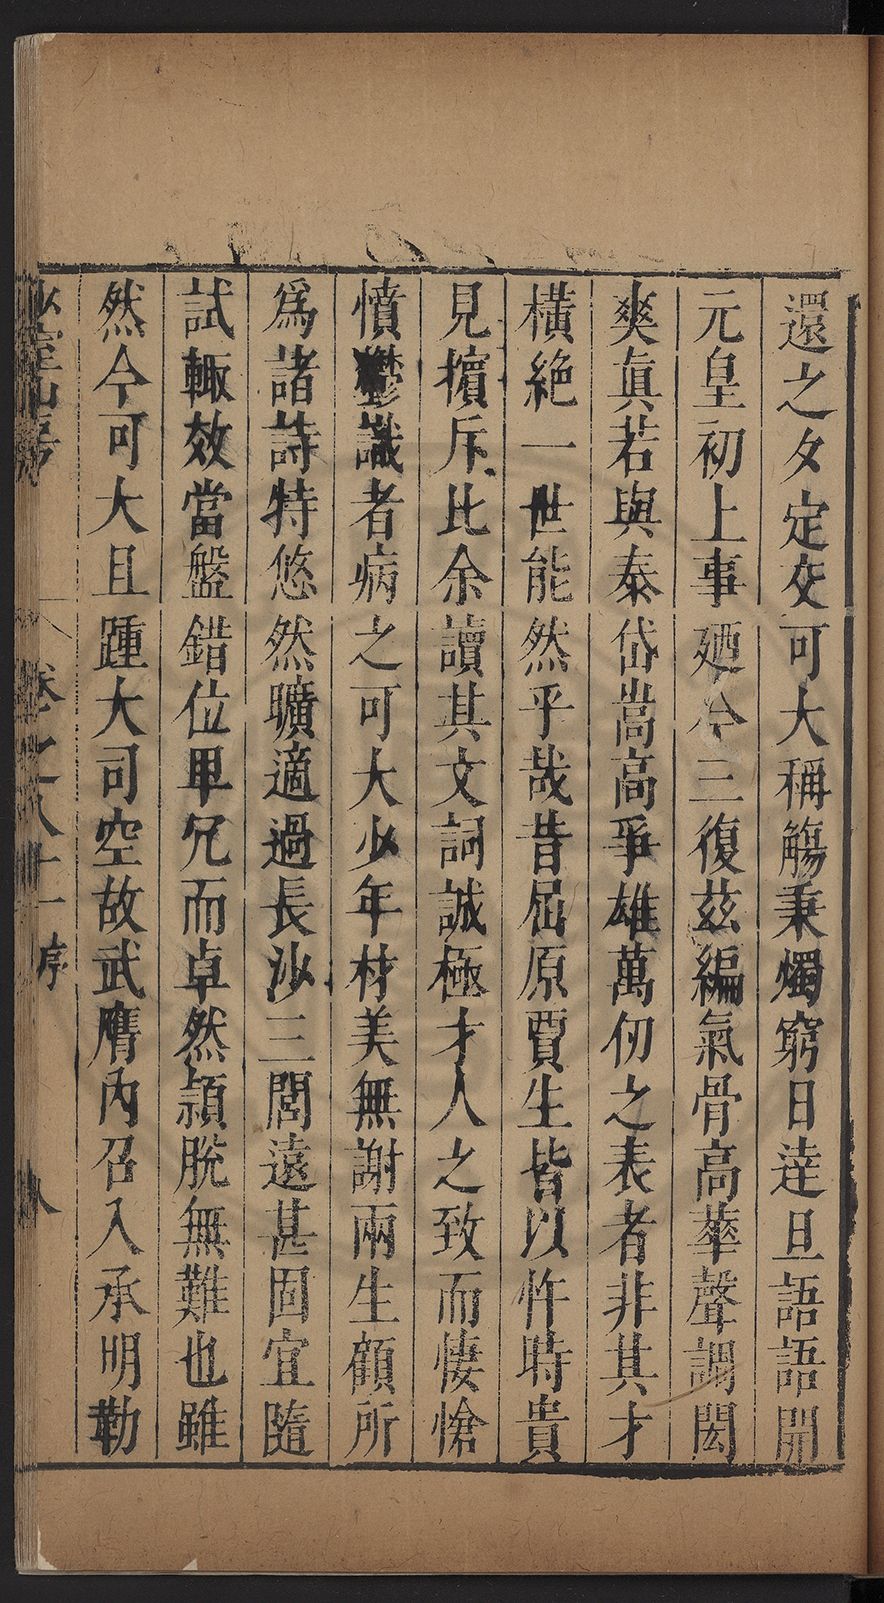 還之夕定交可大稱觴秉燭窮日達旦語語開
元皇初上事廼今三復兹編氣骨高華聲調閎
爽眞若與泰岱嵩高爭雄萬仞之表者非其才
橫絶一世能然乎哉昔屈原賈生皆以忤時貴
見擯斥比余讀其文詞誠極才人之致而悽愴
憤鬱識者病之可大少年材美無謝兩生顧所
爲諸詩特悠然曠適過長沙三閭遠甚固宜隨
試輙效當盤錯位卑冗而卓然頴脫無難也雖
然今可大且踵大司空故武膺內召入承明勒
少室山房
卷之八十一序
八